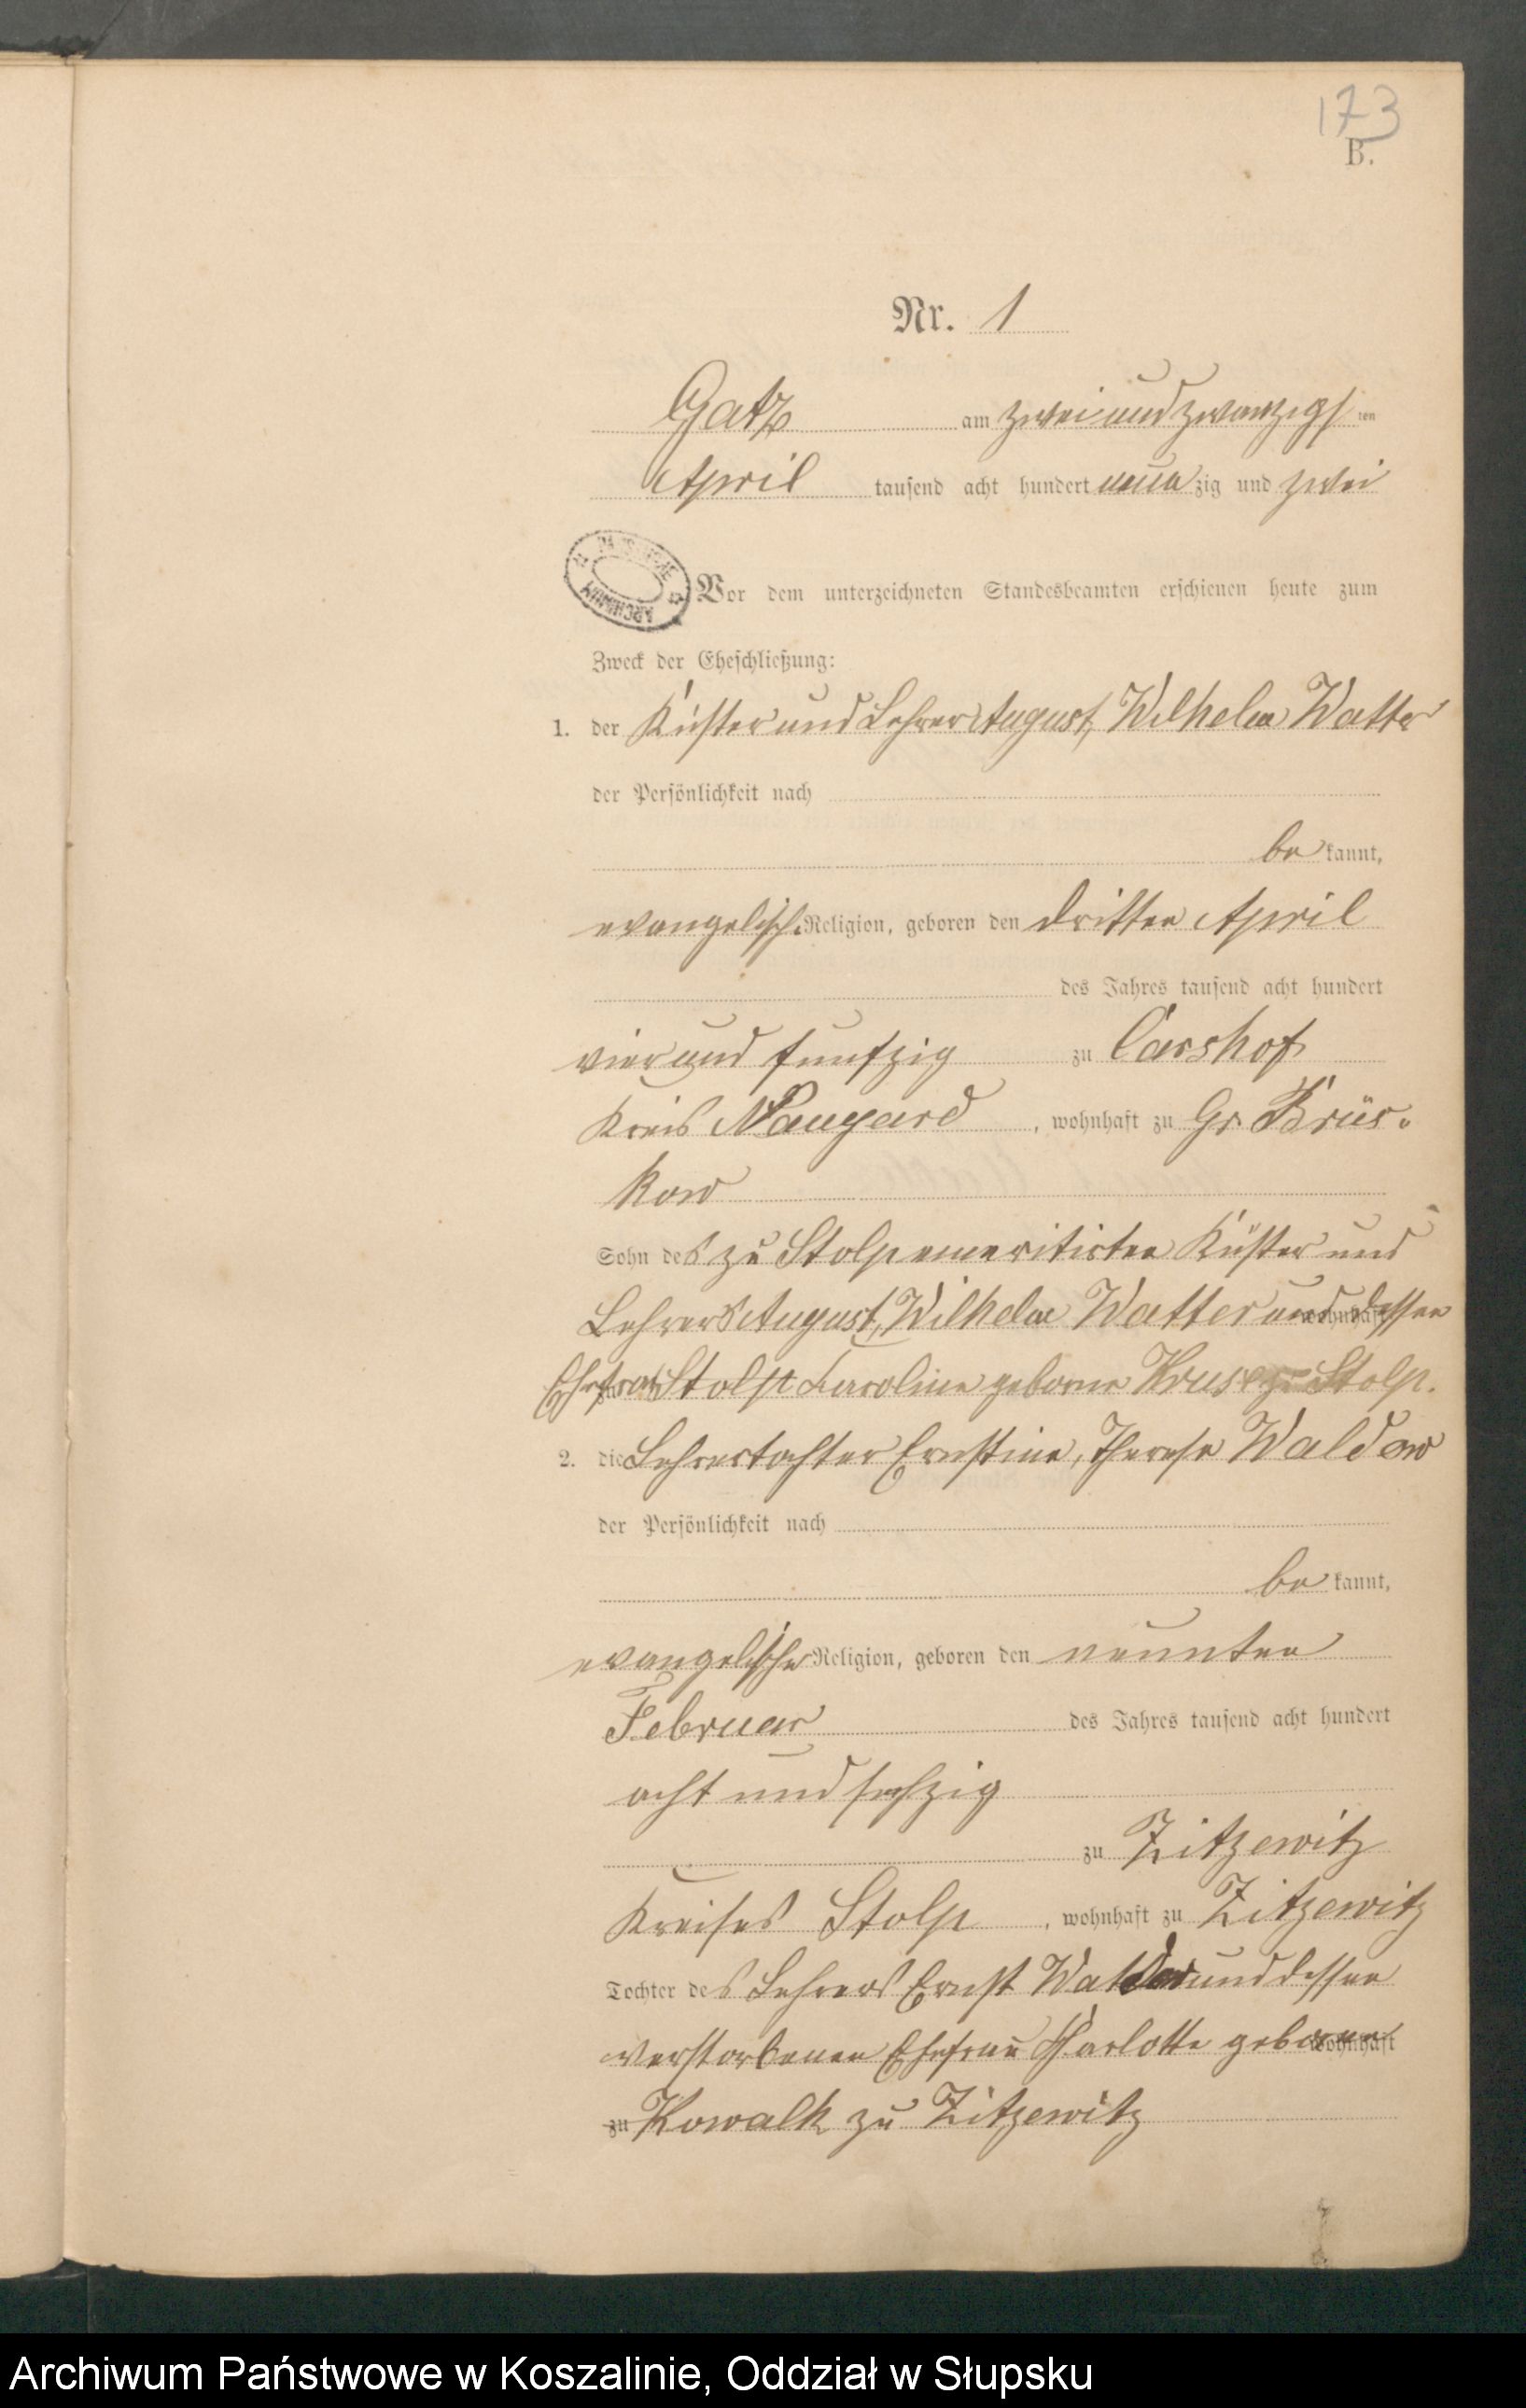 173
B.
Nr. 1
Gatz am zwei und zwanzigsten
April tausend acht hundert neunzig und zwei
ARCHIWUM
Vor dem unterzeichneten Standesbeamten erschienen heute zum
Zweck der Eheschließung:
1. der Küster und Lehrer August, Wilhelm Watter
der Persönlichkeit nach
bekannt,
evangelisch Religion, geboren den dritten April
des Jahres tausend acht hundert
vier und funfzig zu Carshof
Kreis Naugard, wohnhaft zu Gr. Brüs-
kow
Sohn des zu Stolp emeritirten Küster und
Lehrers August, Wilhelm Watter und dessen wohnhaft
Ehefrau Stolp Karoline geborne Kruse zu Stolp.
2. die Lehrertochter Ernstine, Therese Waldow
der Persönlichkeit nach
bekannt,
evangelischer Religion, geboren den neunten
Februar des Jahres tausend acht hundert
acht und sechzig
zu Zitzewitz
Kreises Stolp, wohnhaft zu Zitzewitz
Tochter des Lehrers Ernst Waldow und dessen
verstorbenen Ehefrau Charlotte geborne wohnhaft
zu Kowalk zu Zitzewitz
Archiwum Państwowe w Koszalinie, Oddział w Słupsku